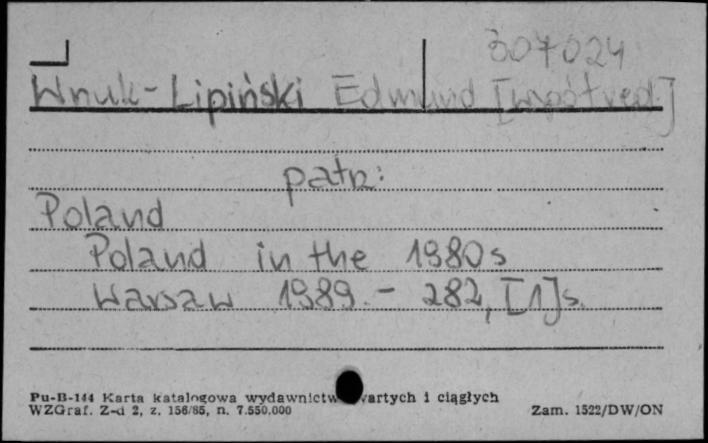 307024
Wnuk-Lipiński Edmund [współred]
patrz:
Poland
Poland in the 1980s
Warsaw 1989. - 282, [1] s.
Pu-B-144 Karta katalogowa wydawnictw zwartych i ciągłych
WZGraf. Z-d 2, z. 156/85, n. 7.550.000 Zam. 1522/DW/ON